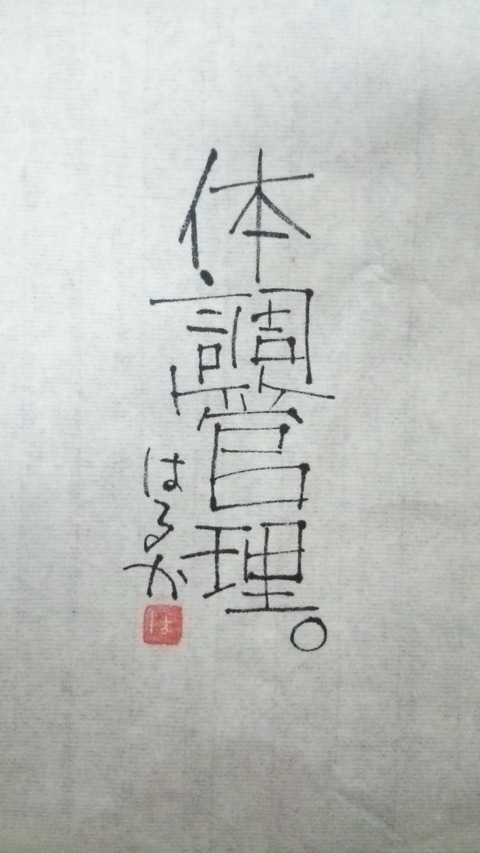 体調管理。
はるか
は